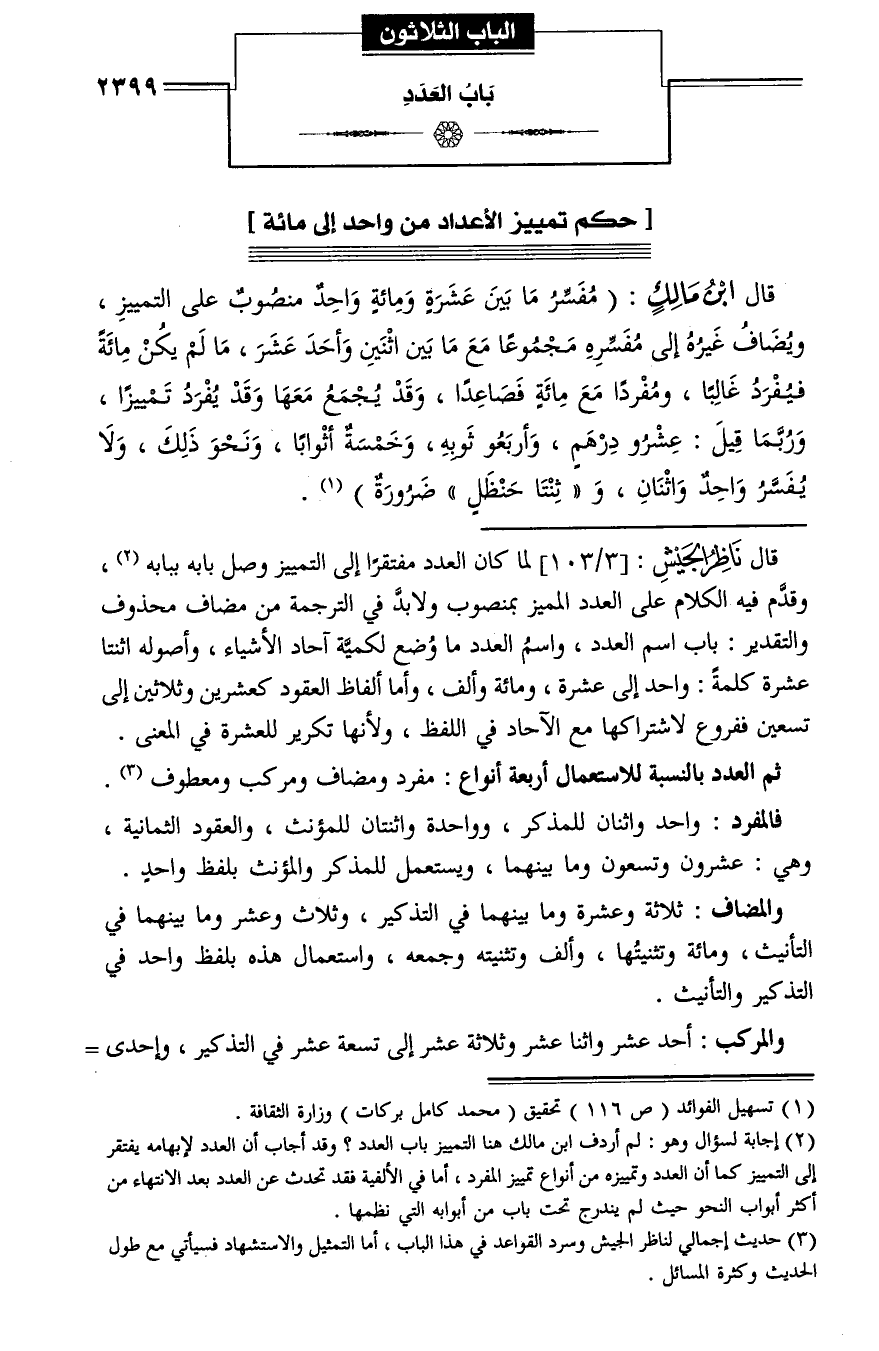 الباب الثلاثون
٢٣٩٩
بَابُ العَدَدِ
[ حكم تمييز الأعداد من واحد إلى مائة ]
قال ابْنُ مَالِكٍ : ( مُفَسِّرُ مَا بَينَ عَشَرَةٍ وَمِائةٍ وَاحِدٌ منصُوبٌ على التمييزِ ،
ويُضَافُ غَيرُهُ إلى مُفَسِّرِهِ مَجْمُوعًا مَعَ مَا بَين اثْنَينِ وَأحَدَ عَشَرَ ، مَا لَمْ يكُنْ مِائَةً
فيُفْرَدُ غَالِبًا ، ومُفْردًا مَعَ مِائةٍ فَصَاعِدًا ، وَقَدْ يُجْمَعُ مَعَهَا وَقَدْ يُفْرَدُ تَمْييزًا ،
وَرُبَّمَا قِيلَ : عِشْرُو دِرْهَمٍ ، وَأربَعُو ثَوبِهِ ، وَخَمْسَةٌ أثْوابًا ، وَنَحْوَ ذَلِكَ ، وَلَا
يُفَسَّرُ وَاحِدٌ وَاثْنَانِ ، وَ « ثِنْتَا حَنْظَلٍ » ضَرُورَةٌ ) (١) .
قال نَاظِرُ الجَيْشِ : [١٠٣/٣] لما كان العدد مفتقرًا إلى التمييز وصل بابه ببابه (٢) ،
وقدَّم فيه الكلام على العدد المميز بمنصوب ولابدَّ في الترجمة من مضاف محذوف
والتقدير : باب اسم العدد ، واسمُ العدد ما وُضع لكميَّة آحاد الأشياء ، وأصوله اثنتا
عشرة كلمةً : واحد إلى عشرة ، ومائة وألف ، وأما ألفاظ العقود كعشرين وثلاثين إلى
تسعين ففروع لاشتراكها مع الآحاد في اللفظ ، ولأنها تكرير للعشرة في المعنى .
ثم العدد بالنسبة للاستعمال أربعة أنواع : مفرد ومضاف ومركب ومعطوف (٣) .
فالمفرد : واحد واثنان للمذكر ، وواحدة واثنتان للمؤنث ، والعقود الثمانية ،
وهي : عشرون وتسعون وما بينهما ، ويستعمل للمذكر والمؤنث بلفظ واحدٍ .
والمضاف : ثلاثة وعشرة وما بينهما في التذكير ، وثلاث وعشر وما بينهما في
التأنيث ، ومائة وتثنيتُها ، وألف وتثنيته وجمعه ، واستعمال هذه بلفظ واحد في
التذكير والتأنيث .
والمركب : أحد عشر واثنا عشر وثلاثة عشر إلى تسعة عشر في التذكير ، وإحدى =
(١) تسهيل الفوائد ( ص ١١٦ ) تحقيق ( محمد كامل بركات ) وزارة الثقافة .
(٢) إجابة لسؤال وهو : لم أردف ابن مالك هنا التمييز باب العدد ؟ وقد أجاب أن العدد لإبهامه يفتقر
إلى التمييز كما أن العدد وتمييزه من أنواع تمييز المفرد ، أما في الألفية فقد تحدث عن العدد بعد الانتهاء من
أكثر أبواب النحو حيث لم يندرج تحت باب من أبوابه التي نظمها .
(٣) حديث إجمالي لناظر الجيش وسرد القواعد في هذا الباب ، أما التمثيل والاستشهاد فسيأتي مع طول
الحديث وكثرة المسائل .